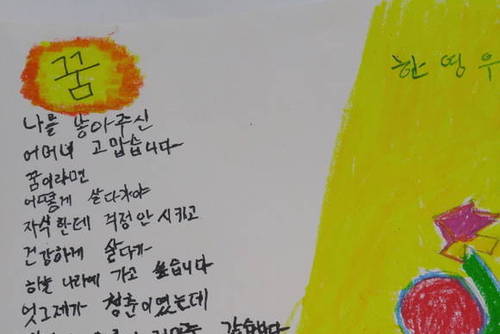 꿈
한영우
나를 낳아주신
어머니 고맙습니다
꿈이라면
어떻게 살다가야
자식한테 걱정안시키고
건강하게 살다가
하늘나라에 가고 싶습니다
엇그제가 청춘이였는데